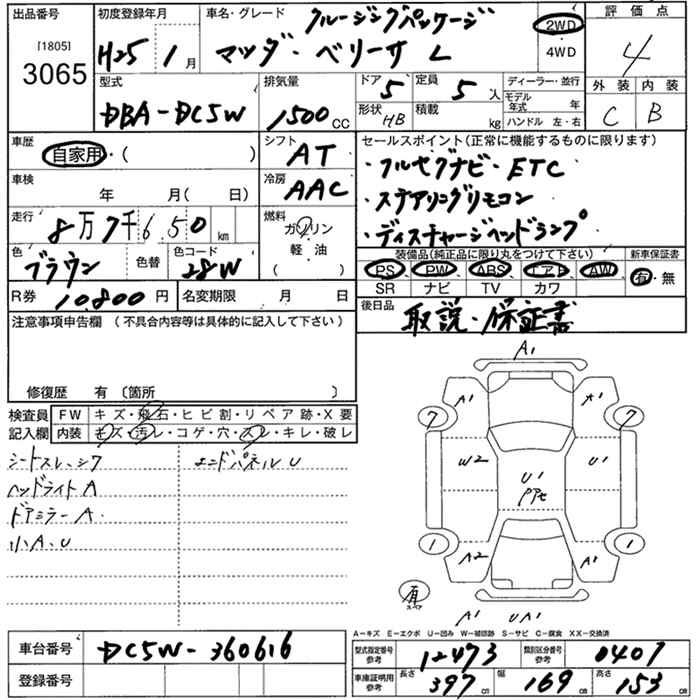 出品番号 [1805] 3065
初度登録年月 H25 1月
車名・グレード クルージングパッケージ
マツダ・ベリーサ L
2WD・4WD
評価点 4
外装 内装
C B
型式 DBA-DC5W
排気量 1500CC
ドア 5
形状 HB
定員 5人
積載 kg
ディーラー・並行
モデル年式 年
ハンドル 左・右
車歴 自家用・( )
シフト AT
車検 年 月( 日)
冷房 AAC
走行 8万7千650km
燃料 ガソリン
軽油
( )
色 ブラウン 色替
色コード 28W
R券 10.800円
名変期限 月 日
セールスポイント(正常に機能するものに限ります)
・フルセグナビ・ETC
・ステアリングリモコン
・ディスチャージヘッドランプ
装備品(純正品に限り丸をつけて下さい)
新車保証書
PS PW ABS エアB AW
有・無
SR ナビ TV カワ
後日品 取説・保証書
注意事項申告欄 (不具合内容等は具体的に記入して下さい)
修復歴 有〔箇所 〕
検査員記入欄
FW キズ・飛石・ヒビ割・リペア跡・X要
内装 キズ・汚レ・コゲ・穴・スレ・キレ・破レ
シートスレ、シワ
エンドパネルU
ヘッドライトA
ドアミラーA
小A、U
A1
A1 A1
7 7
W2 U1 U1
PPセ
1 1
A2 A1
有
スペア
A1 UA1
A-キズ E-エクボ U-凹み W-補修跡 S-サビ C-腐食 XX-交換済
車台番号 DC5W-360616
登録番号
型式指定番号 参考 12473
類別区分番号 参考 0407
車庫証明用 参考 長さ 397cm 幅 169cm 高さ 153cm